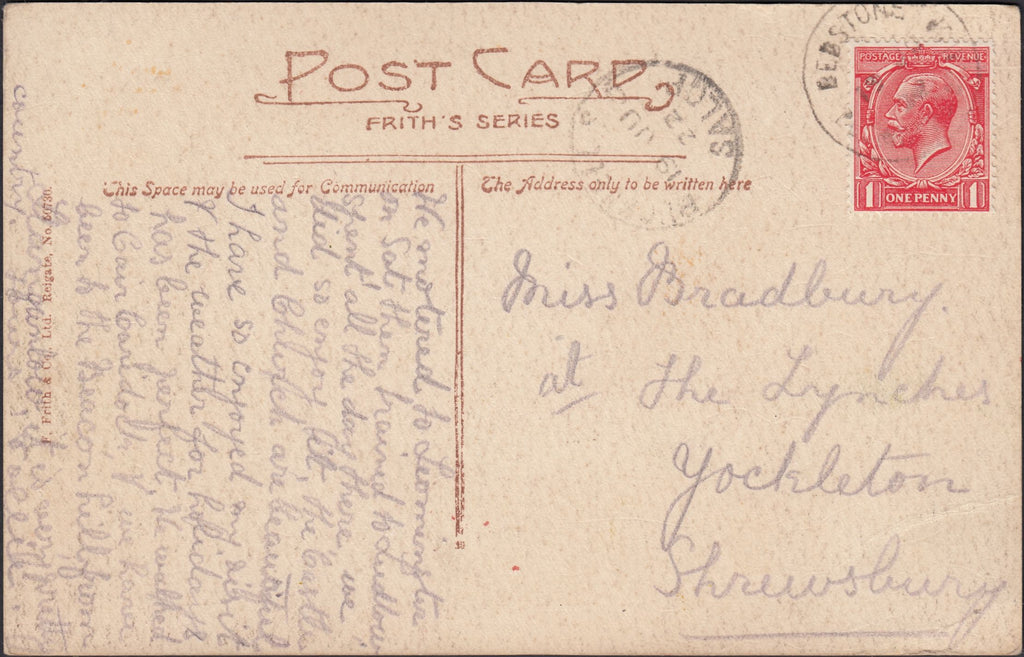 POST CARD
FRITH'S SERIES
This Space may be used for Communication
The Address only to be written here
POSTAGE REVENUE
1 ONE PENNY 1
SALOP
22 JU
19
Miss Bradbury.
at The Lynches
Yockleton
Shrewsbury
We motored to Leominster
on Sat. then trained to Ludlow
spent all the day there, we
did so enjoy it, the Castle
and Church are beautiful
I have so enjoyed my visit
& the weather for holidays
has been perfect. We walked
to we have
been to the Beacon hill from
it is very pretty
country
F. Frith & Co., Ltd. Reigate, No.